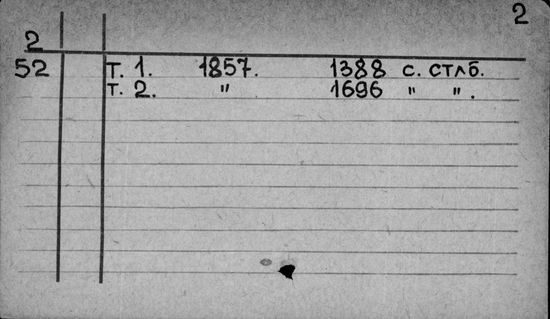 2
2
52 т. 1. 1857. 1388 с. стлб.
т. 2. " 1696 " ".